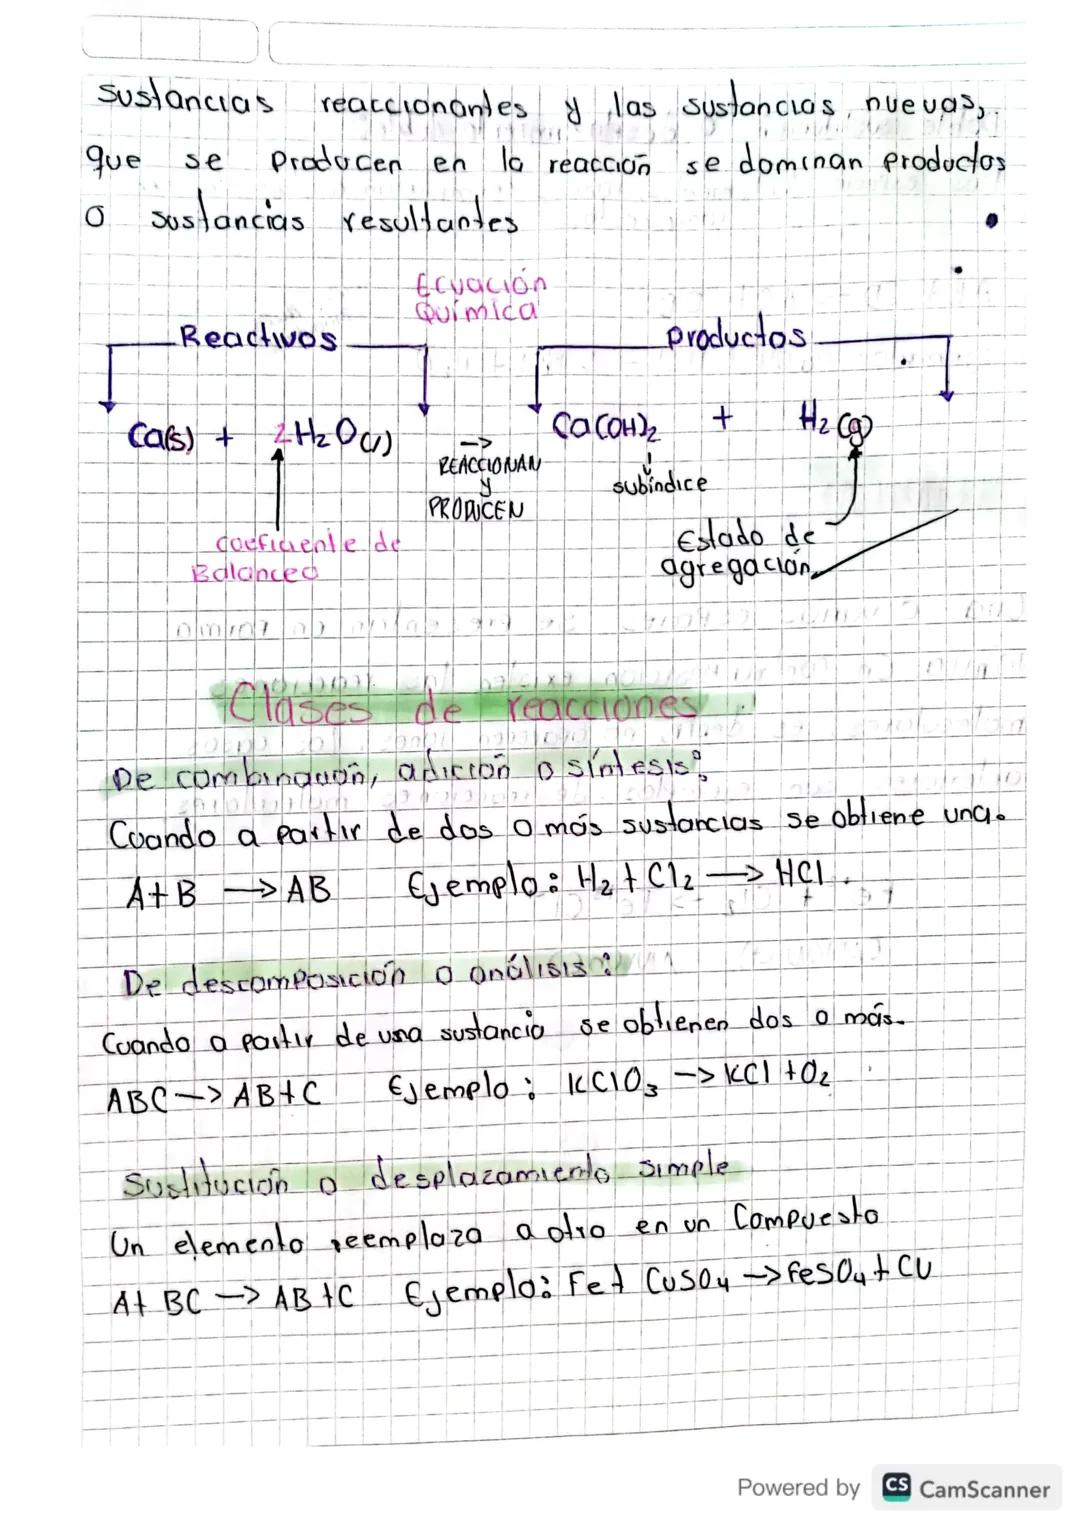 sustancias reaccionantes y las sustancias nuevas,
que se producen en la reacción se dominan productos
o sustancias resultantes
Ecuación
Química
Reactivos
productos
Ca(s) + 2H₂O(l) -> Ca(OH)₂ + H₂(g)
REACCIONAN
y
PRODUCEN
subíndice
coeficiente de
Balanceo
Estado de
agregación
Clases de reacciones
De combinación, adición o síntesis:
Cuando a partir de dos o más sustancias se obtiene una.
A+B -> AB Ejemplo: H₂ + Cl₂ -> HCl.
De descomposición o análisis:
Cuando a partir de una sustancia se obtienen dos o más.
ABC -> AB+C Ejemplo: KClO₃ -> KCl + O₂
Sustitución o desplazamiento simple
Un elemento reemplaza a otro en un Compuesto
A+ BC -> AB +C Ejemplo: Fe+ CuSO₄ -> FeSO₄ + CU
Powered by CS CamScanner